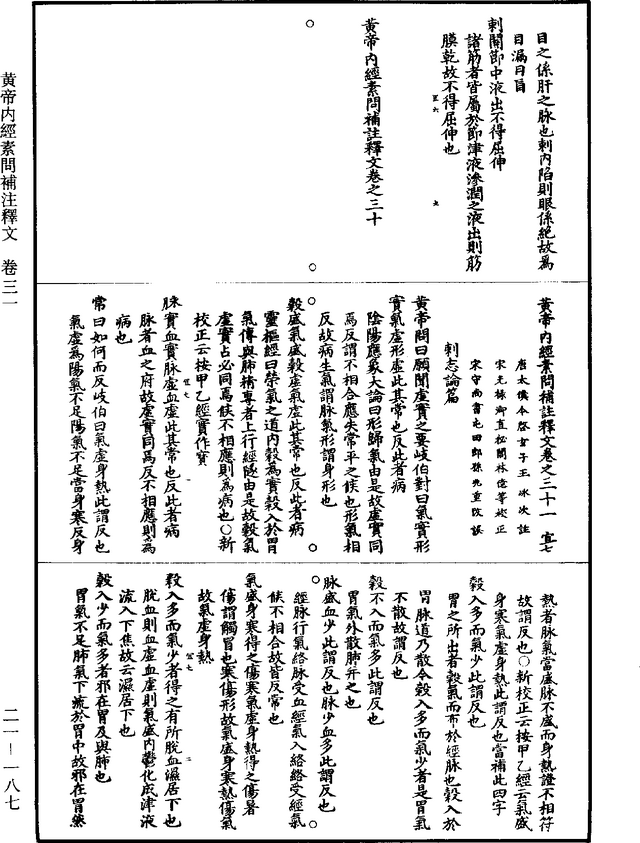 黄帝内經素問補注釋文 卷三一
二一—一八七
目之係肝之脉也刺内陷則眼係絶故為
目漏目盲
刺關節中液出不得屈伸
諸筋者皆屬於節津液滲潤之液出則筋
膜乾故不得屈伸也
黄帝内經素問補註釋文卷之三十
黄帝内經素問補註釋文卷之三十一 宣七
唐太僕令啓玄子王冰次註
宋光禄卿直秘閣林億等校正
宋守尚書屯田郎孫兆重改誤
刺志論篇
黄帝問曰願聞虚實之要岐伯對曰氣實形
實氣虚形虚此其常也反此者病
陰陽應象大論曰形歸氣由是故虚實同
焉反謂不相合應失常平之候也形氣相
反故病生氣謂脉氣形謂身形也
穀盛氣盛穀虚氣虚此其常也反此者病
靈樞經曰榮氣之道内穀為實穀入於胃
氣傳與肺精專者上行經隧由是故穀氣
虚實占必同焉候不相應則為病也○新
校正云按甲乙經實作寳
脉實血實脉虚血虚此其常也反此者病
脉者血之府故虚實同焉反不相應則為
病也
常曰如何而反岐伯曰氣虚身熱此謂反也
氣虚為陽氣不足陽氣不足當身寒反身
熱者脉氣當盛脉不盛而身熱證不相符
故謂反也○新校正云按甲乙經云氣盛
身寒氣虚身熱此謂反也當補此四字
穀入多而氣少此謂反也
胃之所出者穀氣而布於經脉也穀入於
胃脉道乃散今穀入多而氣少者是胃氣
不散故謂反也
穀不入而氣多此謂反也
胃氣外散肺并之也
脉盛血少此謂反也脉少血多此謂反也
經脉行氣絡脉受血經氣入絡絡受經氣
候不相合故皆反常也
氣盛身寒得之傷寒氣虚身熱得之傷暑
傷謂觸冒也寒傷形故氣盛身寒熱傷氣
故氣虚身熱
穀入多而氣少者得之有所脱血濕居下也
脱血則血虚血虚則氣盛内鬱化成津液
流入下焦故云濕居下也
穀入少而氣多者邪在胃及與肺也
胃氣不足肺氣下流於胃中故邪在胃然